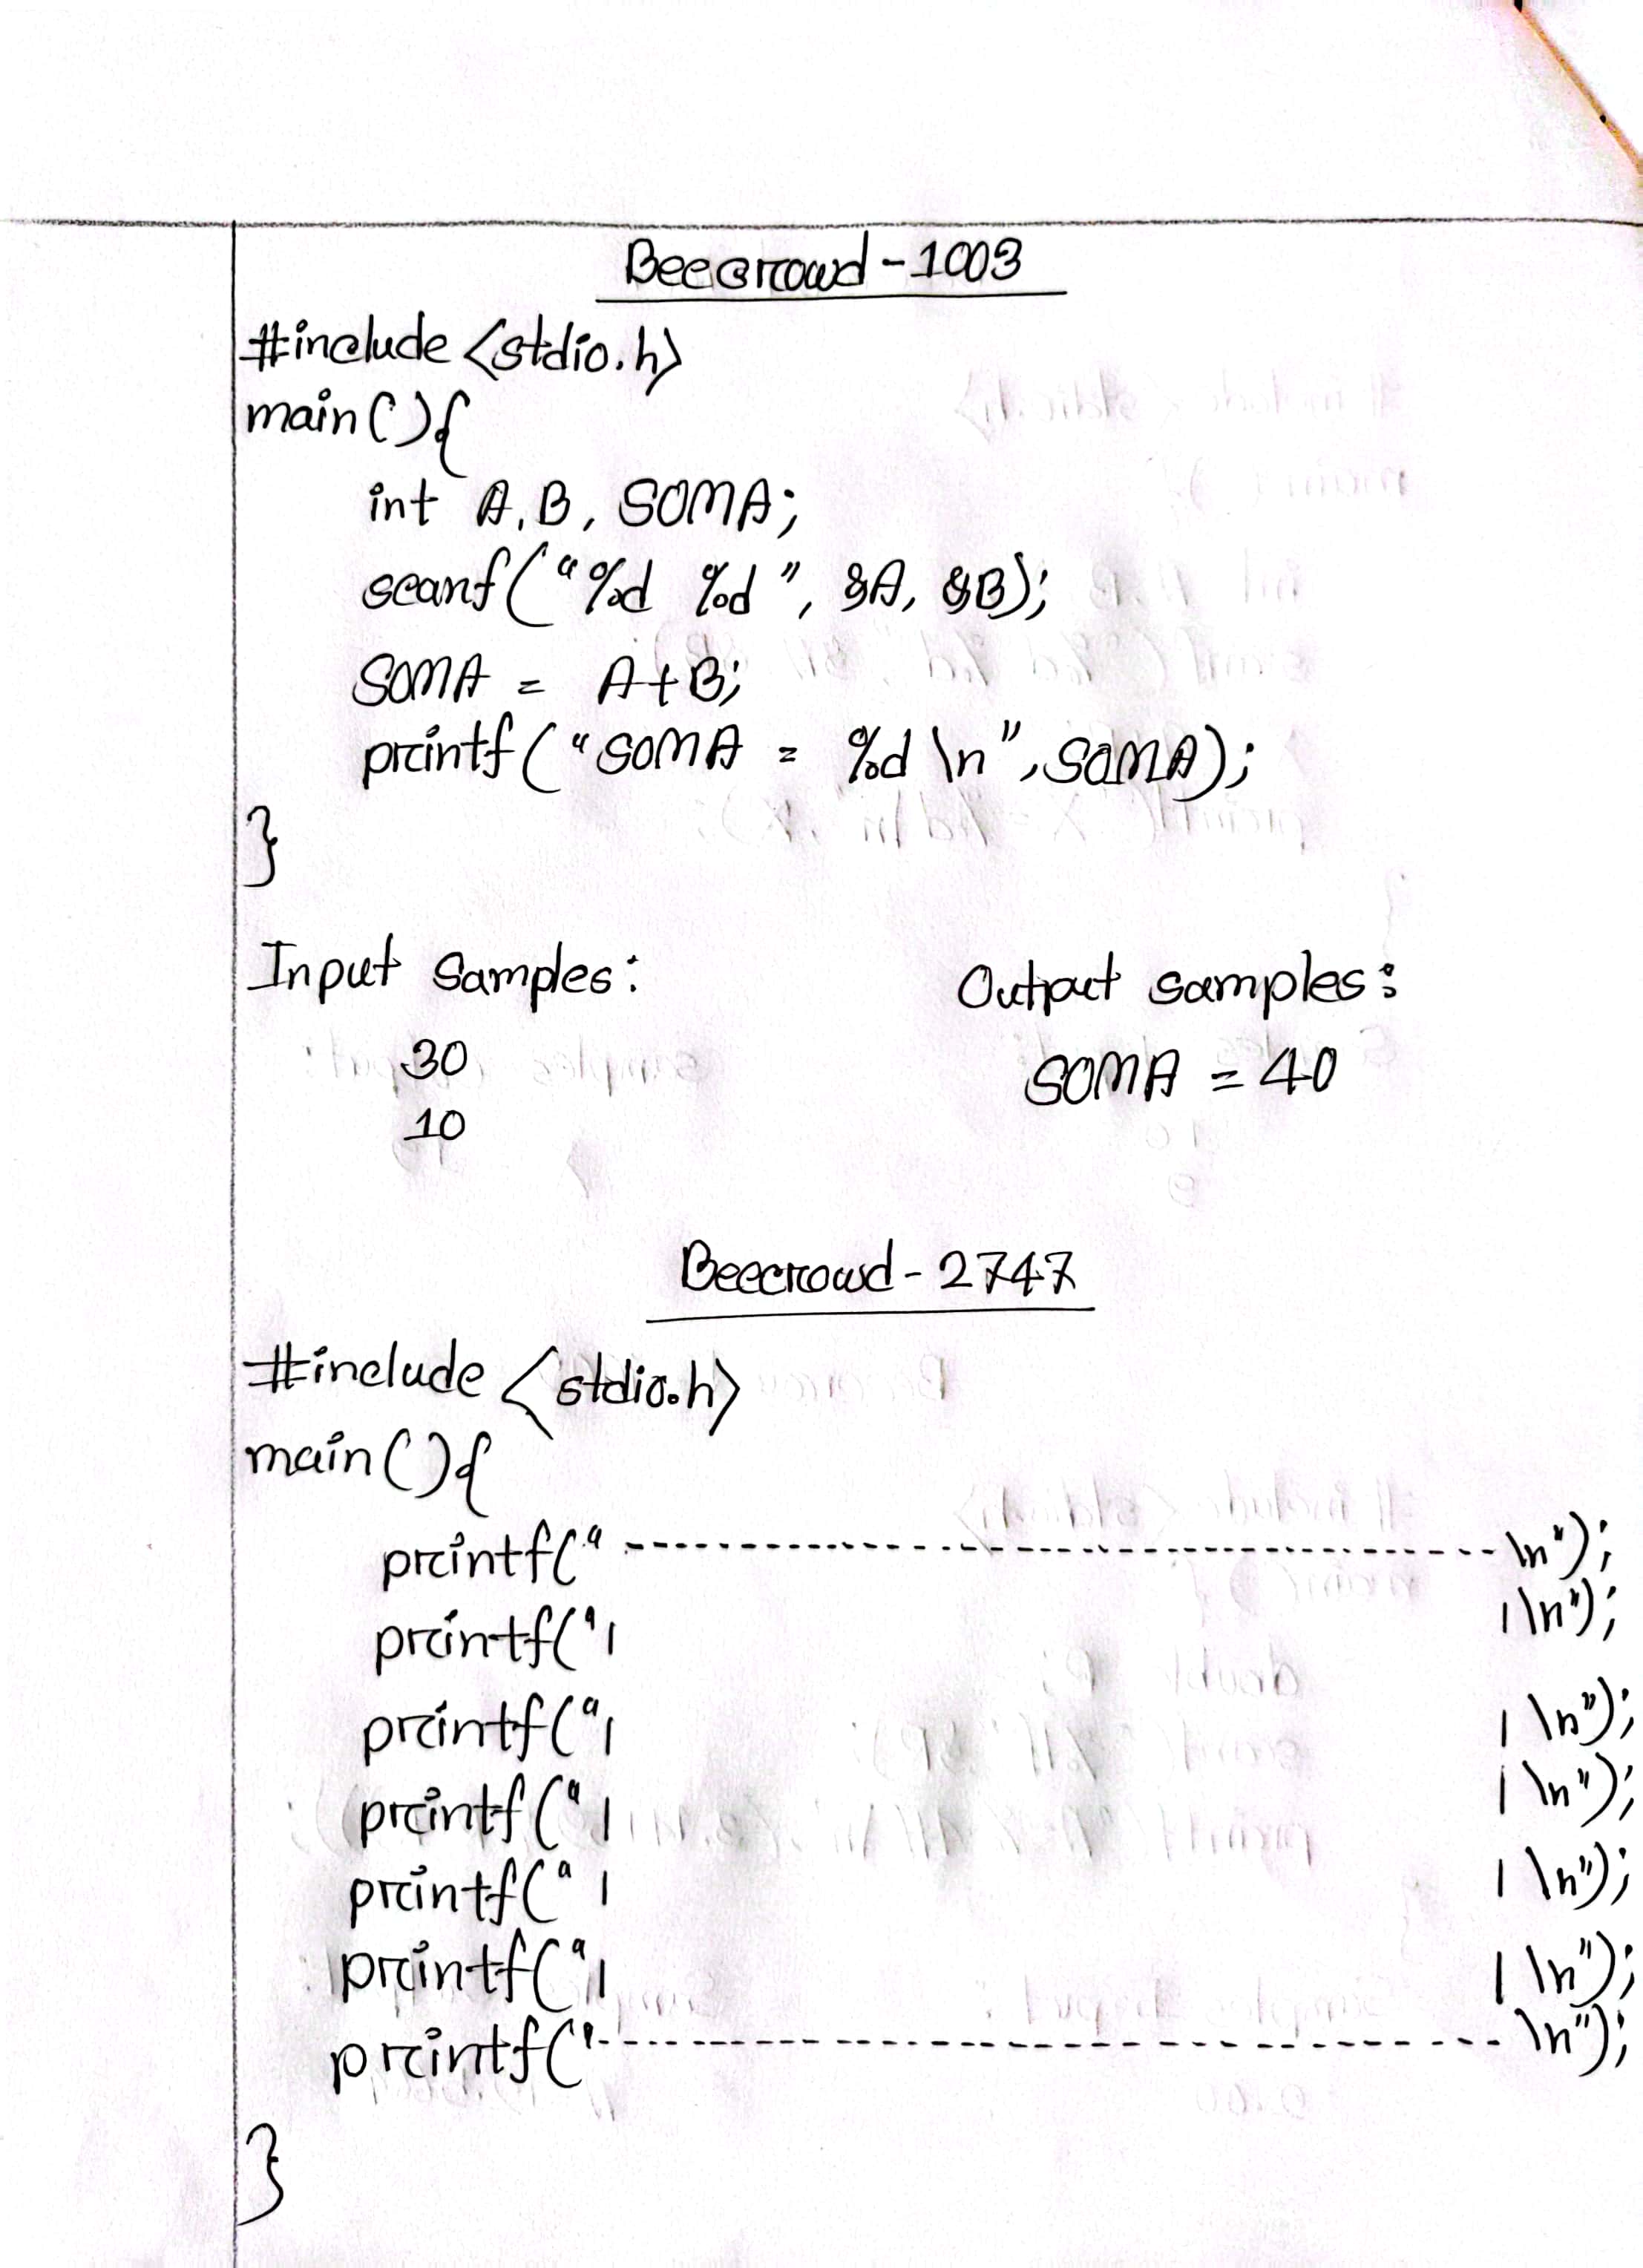 Beecrowd - 1003
#include <stdio.h>
main(){
int A, B, SOMA;
scanf("%d %d", &A, &B);
SOMA = A+B;
printf("SOMA = %d \n", SOMA);
}
Input Samples:
Output samples:
30
SOMA = 40
10
Beecrowd - 2747
#include <stdio.h>
main(){
printf("---------------------------------------\n");
printf("|                                     |\n");
printf("|                                     |\n");
printf("|                                     |\n");
printf("|                                     |\n");
printf("|                                     |\n");
printf("---------------------------------------\n");
}